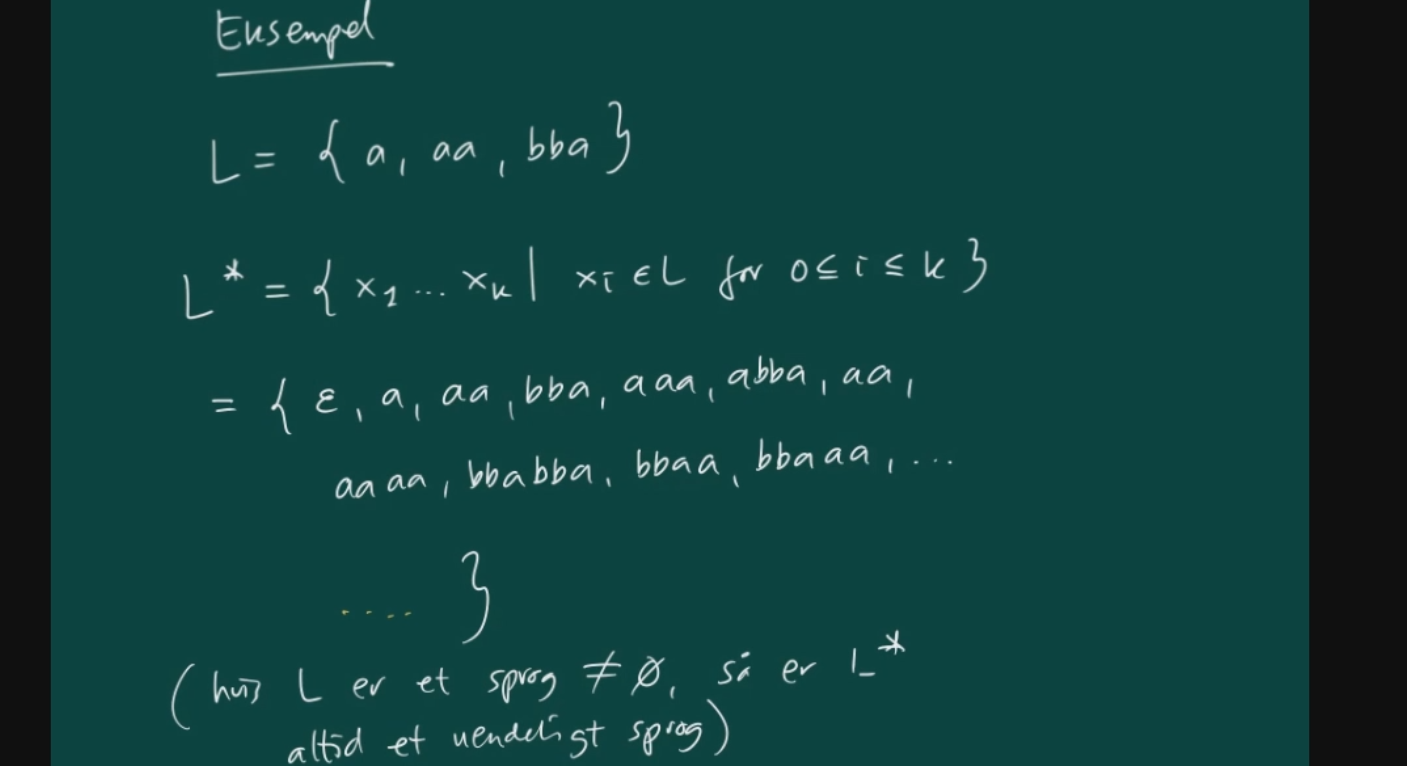 Eksempel
L = { a, aa, bba }
L* = { x₁ ... xₖ | xᵢ ∈ L for 0 ≤ i ≤ k }
= { ε, a, aa, bba, aaa, abba, aa,
aaaa, bbabba, bbaa, bbaaa, ...
.... }
(hvis L er et sprog ≠ ∅, så er L*
altid et uendeligt sprog)